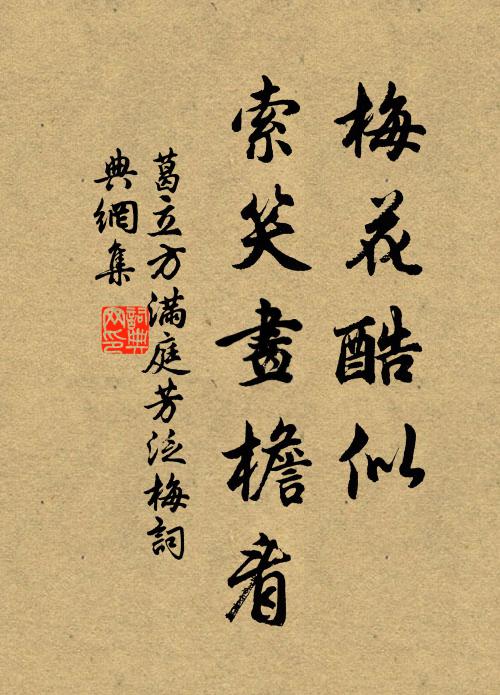 梅花酷似
索笑畫檐看
葛立方滿庭芳泛梅詞
典網集
詞典网印